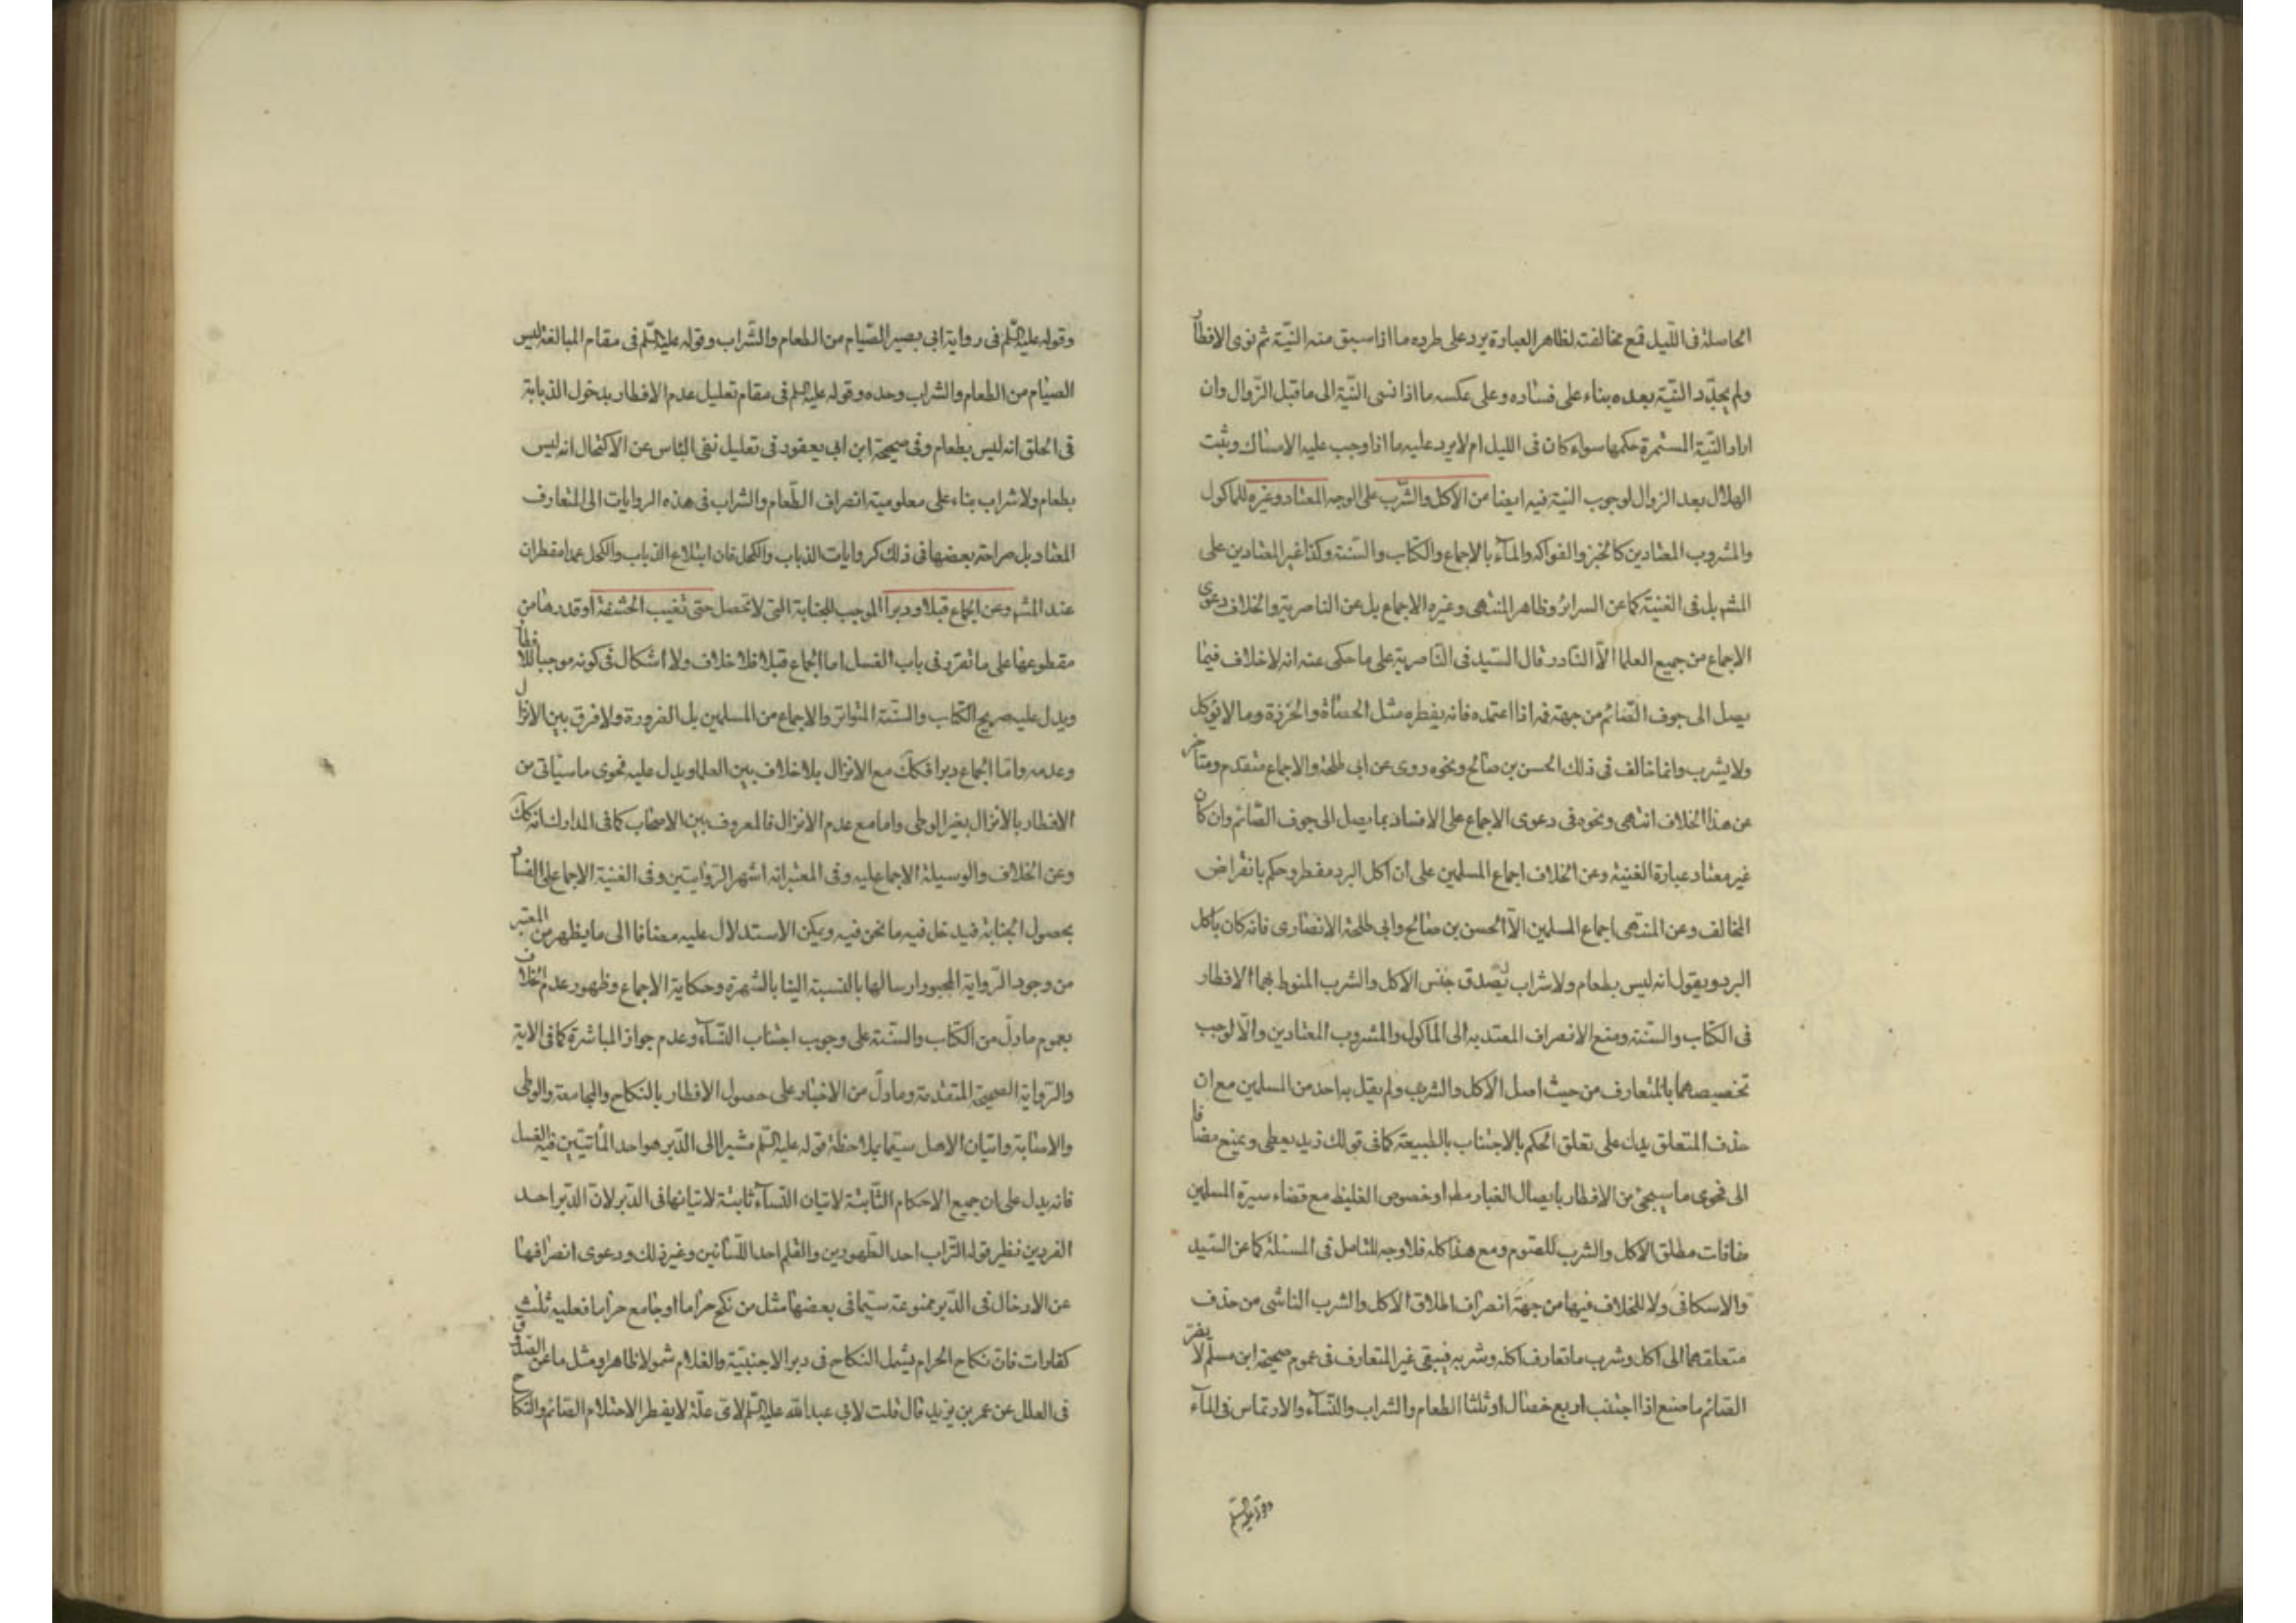 الحاصلة فى اللّيل فمع مخالفته لظاهر العبارة يرد على طرده ما اذا سبق منه النيّة ثم نوى الافطار
ولم يجدّد النيّة بعده بناء على فساده وعلى عكسه ما اذا نسى النّية الى ما قبل الزّوال وان
اراد النّية المستمرة حكمها سواء كان فى الليل ام لا يرد عليه ما اذا وجب عليه الامساك وثبت
الهلال بعد الزوال لوجوب النية فيه ايضا من الاكل والشّرب على الوجه المعتاد وغيره للماكول
والمشروب المعتادين كالخبز والفواكه والمآء بالاجماع والكتاب والسّنة وكذا غير المعتادين على
المشهـ بل فى الغنية كما عن السرائر وظاهر المنتهى وغيره الاجماع بل عن الناصرية والخلاف دعوى
الاجماع من جميع العلما الّا النادر قال السّيد فى النّاصرية على ما حكى عنه انه لا خلاف فيما
يصل الى جوف الصّائم من جهة فمه اذا اعتمده فانه يفطره مثل الحصاة والخرزة وما لا يؤكل
ولا يشرب وانما خالف فى ذلك الحسن بن صالح ونحوه روى عن ابى طلحة والاجماع متقدم ومتاخر
عن هذا الخلاف انتهى ونحوه فى دعوى الاجماع على الافساد بما يصل الى جوف الصّائم وان كان
غير معتاد عبارة الغنية وعن الخلاف اجماع المسلمين على ان اكل البرد مفطر وحكم بانقراض
المخالف وعن المنتهى اجماع المسلمين الّا الحسن بن صالح وابى طلحة الانصارى فانه كان ياكل
البرد ويقول انه ليس بطعام ولا شراب لصدق جنس الاكل والشرب المنوط بهما الافطار
فى الكتاب والسّنة ومنع الانصراف المعتد به الى الماكول والمشروب المعتادين والّا لوجب
تخصيصهما بالمتعارف من حيث اصل الاكل والشرب ولم يقل به احد من المسلمين مع ان
حذف المتعلق يدل على تعلق الحكم بالاجتناب بالطبيعة كما فى قولك زيد يعطى ويمنع مضافا
الى فحوى ما سيجئ من الافطار بايصال الغبار مطـ او خصوص الغليظ مع قضاء سيرة المسلمين
منافات مطلق الاكل والشرب للصّوم ومع هذا كله فلا وجه للتامل فى المسئلة كما عن السّيد
والاسكافى ولا للخلاف فيها من جهة انصراف اطلاق الاكل والشرب الناشى من حذف
متعلقهما الى اكل وشرب ما تعارف اكله وشربه فيبقى غير المتعارف فى عموم صحيحة ابن مسلم لا يضر
الصّائم ما صنع اذا اجتنب اربع خصال او ثلثا الطعام والشراب والنّسآء والارتماس فى المآء
وقوله عليه السّلم
وقوله عليه السّلم فى رواية ابى بصير الصّيام من الطعام والشّراب وقوله عليه السّلم فى مقام المبالغة ليس
الصيام من الطعام والشراب وحده وقوله عليه السلم فى مقام تعليل عدم الافطار بدخول الذبابة
فى الحلق انه ليس بطعام وفى صحيحة ابن ابى يعفور فى تعليل نفى الباس عن الاكتحال انه ليس
بطعام ولا شراب بناء على معلومية انصراف الطّعام والشراب فى هذه الروايات الى المتعارف
المعتاد بل صراحة بعضها فى ذلك كروايات الذباب والكحل فان ابتلاع الذباب والكحل عمدا مفطران
عند المشهـ وعن الجماع قبلا ودبرا الموجب للجنابة التى لا تحصل حتى تغيب الحشفة او قدرها من
مقطوعها على ما تقرر فى باب الغسل اما الجماع قبلا فلا خلاف ولا اشكال فى كونه موجبا للافطار
ويدل عليه صريح الكتاب والسّنة المتواتر والاجماع من المسلمين بل الضرورة ولا فرق بين الانزال
وعدمه وامّا الجماع دبرا فكك مع الانزال بلا خلاف بين العلما ويدل عليه فحوى ما سياتى من
الافطار بالانزال بغير الوطى واما مع عدم الانزال فالمعروف بين الاصحاب كما فى المدارك انه كك
وعن الخلاف والوسيلة الاجماع عليه وفى المعتبر انه اشهر الرّوايتين وفى الغنية الاجماع على الفساد
بحصول الجنابة فيدخل فيه ما نحن فيه ويمكن الاستدلال عليه مضافا الى ما يظهر من المعتبر
من وجود الرّواية المجبور ارسالها بالنسبة الينا بالشهرة وحكاية الاجماع وظهور عدم الخلاف
بعموم ما دلّ من الكتاب والسّنة على وجوب اجتناب النّسآء وعدم جواز المباشرة كما فى الاية
والرّواية الصحيحة المتقدمة وما دلّ من الاخبار على حصول الافطار بالنكاح والمجامعة والوطى
والاصابة واتيان الاهل سيّما بملاحظة قوله عليه السّلم مشيرا الى الدّبر هو احد الماتيّين فيه الغسل
فانه يدل على ان جميع الاحكام الثّابتة لاتيان النّسآء ثابتة لاتيانها فى الدّبر لان الدّبر احد
الفردين نظير قوله التّراب احد الطّهورين والقلم احد اللّسانين وغير ذلك ودعوى انصرافها
عن الادخال فى الدّبر ممنوعة سيّما فى بعضها مثل من نكح حراما او جامع حراما فعليه ثلث
كفارات فان نكاح الحرام يشمل النكاح فى دبر الاجنبيّة والغلام شمولا ظاهرا ومثل ما عن الصدوق
فى العلل عن عمر بن يزيد قال قلت لابى عبد الله عليه السّلم لاىّ علّة لا يفطر الاحتلام الصّائم والنكاح